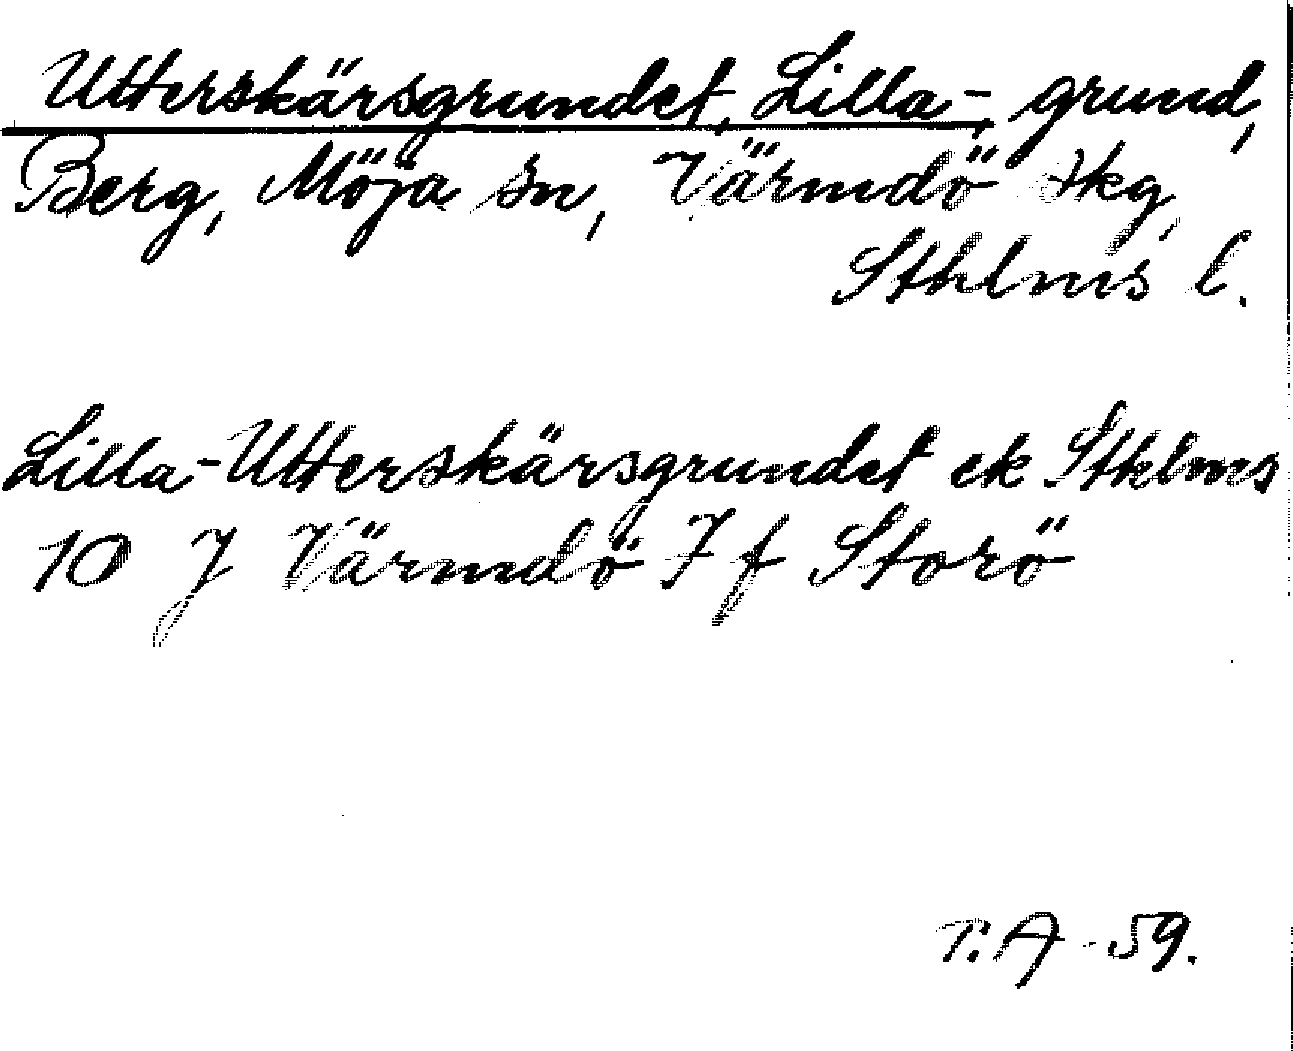 Utterskärsgrundet, Lilla-, grund,
Berg, Möja sn, Värmdö skg,
Sthlms l.
Lilla-Utterskärsgrundet ek Sthlms
10 J Värmdö 7 f Storö
T.A -59.